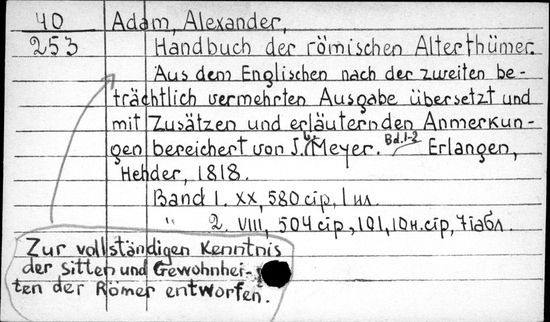 40 Adam, Alexander,
253 Handbuch der römischen Alterthümer.
Aus dem Englischen nach der zweiten be-
trächtlich vermehrten Ausgabe übersetzt und
mit Zusätzen und erläuternden Anmerkun-
gen bereichert von J. L. Meyer. Bd.1-2 Erlangen,
Hehder, 1818.
Band 1. XX, 580 cip, 1 ил.
" 2. VIII, 504 cip, 101, 10н.cip, 7іабл.
Zur vollständigen Kenntnis
der Sitten und Gewohnhei-
ten der Römer entworfen.